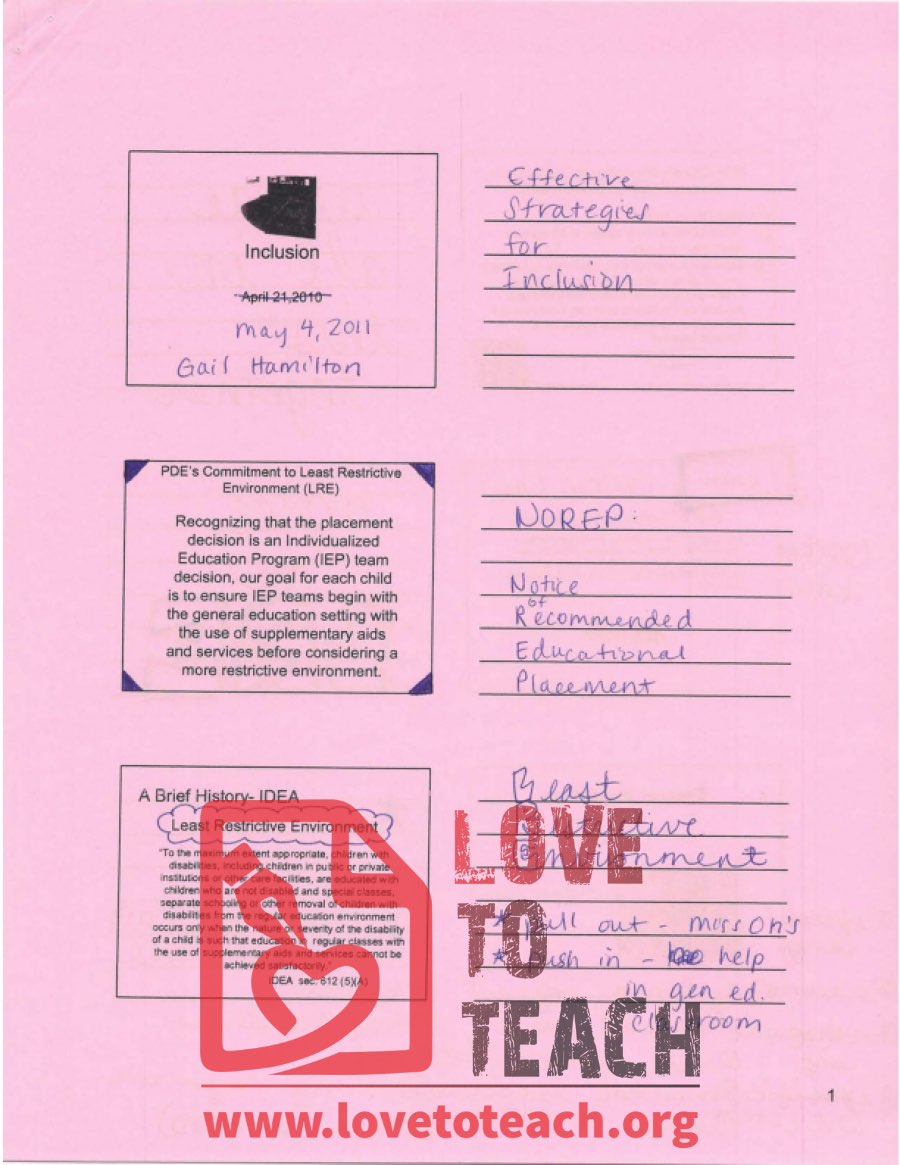 Inclusion
April 21,2010
may 4, 2011
Gail Hamilton
Effective
Strategies
for
Inclusion
PDE's Commitment to Least Restrictive
Environment (LRE)
Recognizing that the placement
decision is an Individualized
Education Program (IEP) team
decision, our goal for each child
is to ensure IEP teams begin with
the general education setting with
the use of supplementary aids
and services before considering a
more restrictive environment.
NOREP:
Notice
of
Recommended
Educational
Placement
A Brief History- IDEA
Least Restrictive Environment
"To the maximum extent appropriate, children with
disabilities, including children in public or private
institutions or other care facilities, are educated with
children who are not disabled and special classes,
separate schooling or other removal of children with
disabilities from the regular education environment
occurs only when the nature or severity of the disability
of a child is such that education in regular classes with
the use of supplementary aids and services cannot be
achieved satisfactorily."
IDEA sec. 612 (5)(A)
Least
Restrictive
Environment
* pull out -
* push in - help
in gen ed.
classroom
LOVE
TO
TEACH
www.lovetoteach.org
1